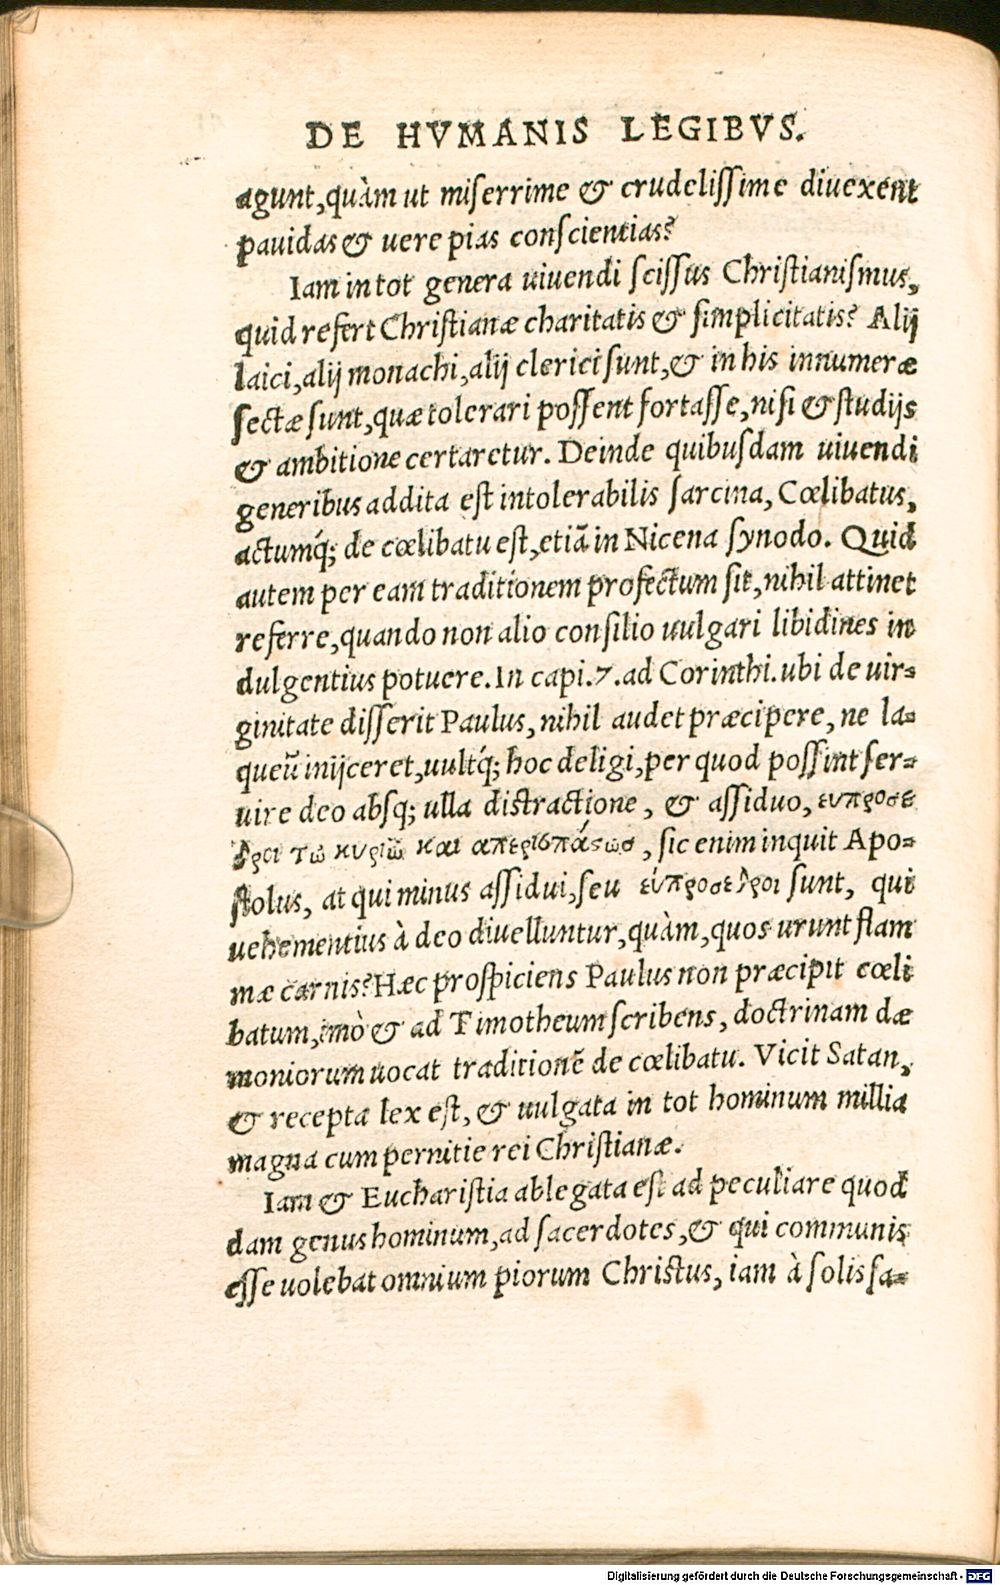 DE HVMANIS LEGIBVS.
agunt, quàm ut miserrime & crudelissime diuexent
pauidas & uere pias conscientias?
Iam in tot genera uiuendi scissus Christianismus,
quid refert Christianæ charitatis & simplicitatis? Alij
laici, alij monachi, alij clerici sunt, & in his innumeræ
sectæ sunt, quæ tolerari possent fortasse, nisi & studijs
& ambitione certaretur. Deinde quibusdam uiuendi
generibus addita est intolerabilis sarcina, Cœlibatus,
actumq́; de cœlibatu est, etiã in Nicena synodo. Quid
autem per eam traditionem profectum sit, nihil attinet
referre, quando non alio consilio uulgari libidines in
dulgentius potuere. In capi. 7. ad Corinthi. ubi de uir=
ginitate disserit Paulus, nihil audet præcipere, ne la=
queũ inijceret, uultq́; hoc deligi, per quod possint ser=
uire deo absq; ulla distractione, & assiduo, ευπροσε
δροι τω κυριῶ και απερισπάστωσ, sic enim inquit Apo=
stolus, at qui minus assidui, seu εύπροσεδροι sunt, qui
uehementius à deo diuelluntur, quàm, quos urunt flam
mæ carnis? Hæc prospiciens Paulus non præcipit cœli
batum, imò & ad Timotheum scribens, doctrinam dæ
moniorum uocat traditionẽ de cœlibatu. Vicit Satan,
& recepta lex est, & uulgata in tot hominum millia
magna cum pernitie rei Christianæ.
Iam & Eucharistia ablegata est ad peculiare quod
dam genus hominum, ad sacerdotes, & qui communis
esse uolebat omnium piorum Christus, iam à solis sa=
Digitalisierung gefördert durch die Deutsche Forschungsgemeinschaft - DFG